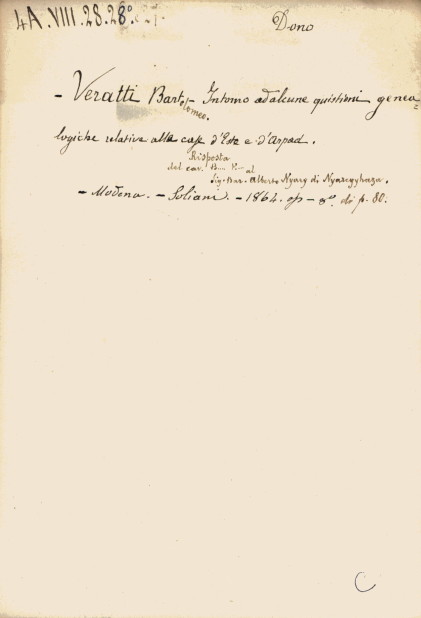 4A.VIII.28.28°.
Dono
- Veratti Bartolomeo. - Intorno ad alcune quistioni genea=
logiche relative alle case d'Este e d'Arpad.
Risposta
del cav. B... V... al
Sig. Bar. Alberto Nyarý di Nyaregyhaza.
- Modena. - Soliani. - 1864. op - 8° di p. 80.
C